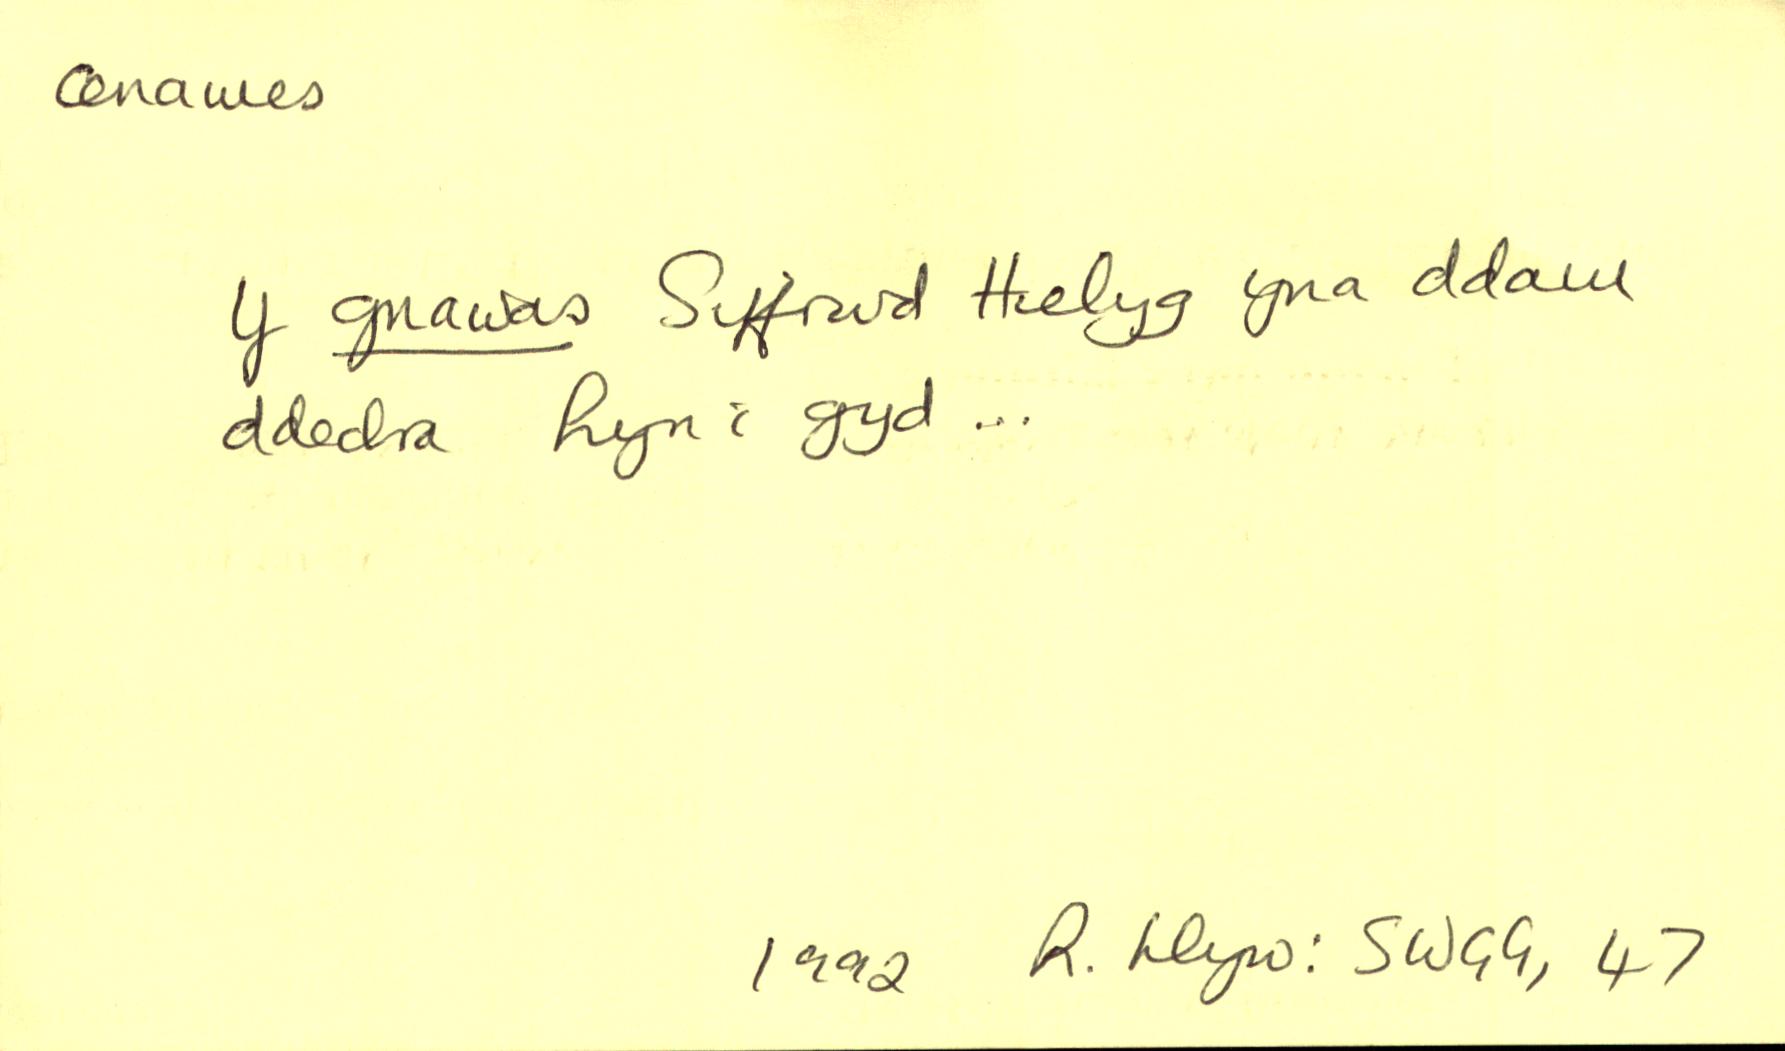 cenawes
Y gnawas Siffrwd Helyg yna ddaru
ddechra hyn i gyd ...
1992 R. Llyw: SWGG, 47